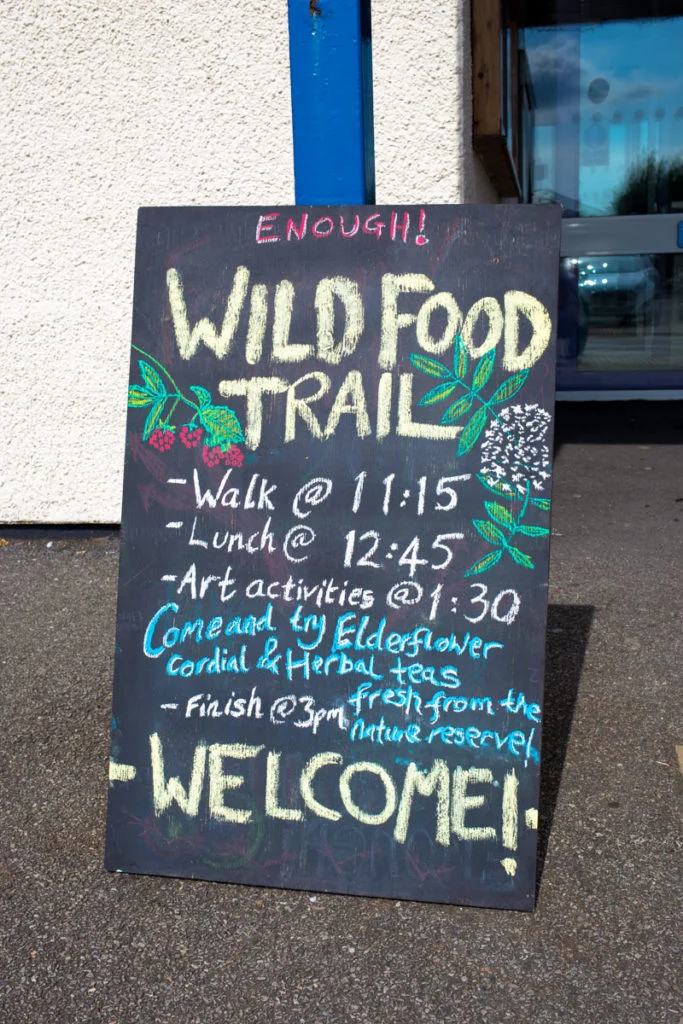 ENOUGH!
WILD FOOD
TRAIL
-Walk @ 11:15
-Lunch @ 12:45
-Art activities @ 1:30
Come and try Elderflower
cordial & Herbal teas
fresh from the
nature reserve!
-Finish @ 3pm
-WELCOME!-